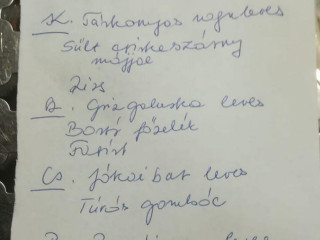 K. Tárkonyos raguleves
Sült csirkeszárny
májjal
Rizs
D. Grízgaluska leves
Borsó főzelék
Fasírt
Cs. Jókai bab leves
Túrós gombóc
leves